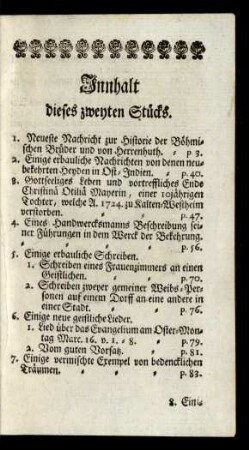 Innhalt
dieses zweyten Stücks.
1. Neueste Nachricht zur Historie der Böhmi-
schen Brüder und von Herrenhuth. p 3.
2. Einige erbauliche Nachrichten von denen neu-
bekehrten Heyden in Ost-Indien. p. 40.
3. Gottseeliges Leben und vortreffliches Ende
Christinä Otiliä Mayerin, einer 10jährigen
Tochter, welche A. 1724. zu Kalten-Westheim
verstorben. p. 47.
4. Eines Handwercksmanns Beschreibung sei-
ner Führungen in dem Werck der Bekehrung.
p. 56.
5. Einige erbauliche Schreiben.
1. Schreiben eines Frauenzimmers an einen
Geistlichen. p. 70.
2. Schreiben zweyer gemeiner Weibs-Per-
sonen auf einem Dorff an eine andere in
einer Stadt. p. 76.
6. Einige neue geistliche Lieder.
1. Lied über das Evangelium am Oster-Mon-
tag Marc. 16. v. 1. - 8. p. 79.
2. Vom guten Vorsatz. p. 81.
7. Einige vermischte Exempel von bedencklichen
Träumen. p. 83.
8. Eini-